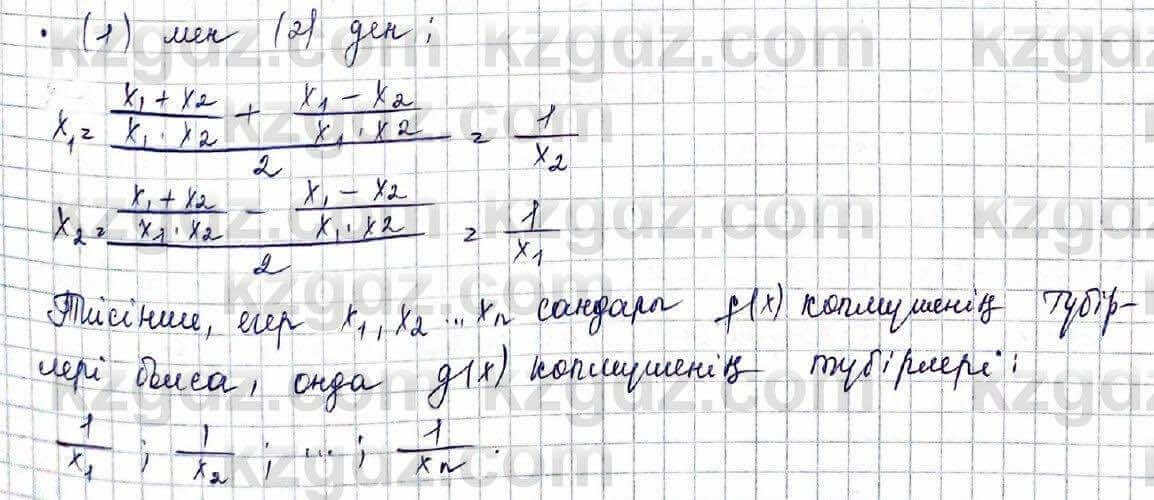 • (1) мен (2) ден;
x₁ = ((x₁ + x₂)/(x₁ · x₂) + (x₁ − x₂)/(x₁ · x₂))/2 = 1/x₂
x₂ = ((x₁ + x₂)/(x₁ · x₂) − (x₁ − x₂)/(x₁ · x₂))/2 = 1/x₁
Тиісінше, егер x₁, x₂ ... xₙ сандары f(x) көпмүшенің түбір-
лері болса, онда g(x) көпмүшенің түбірлері:
1/x₁ ; 1/x₂ ; ... ; 1/xₙ.